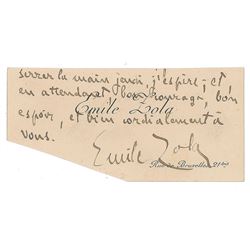 serrer la main jeudi, j'espère; et
en attendant bon courage, bon
Emile Zola
espoir, et bien cordialement à
vous.
Emile Zola
Rue de Bruxelles, 21 bis